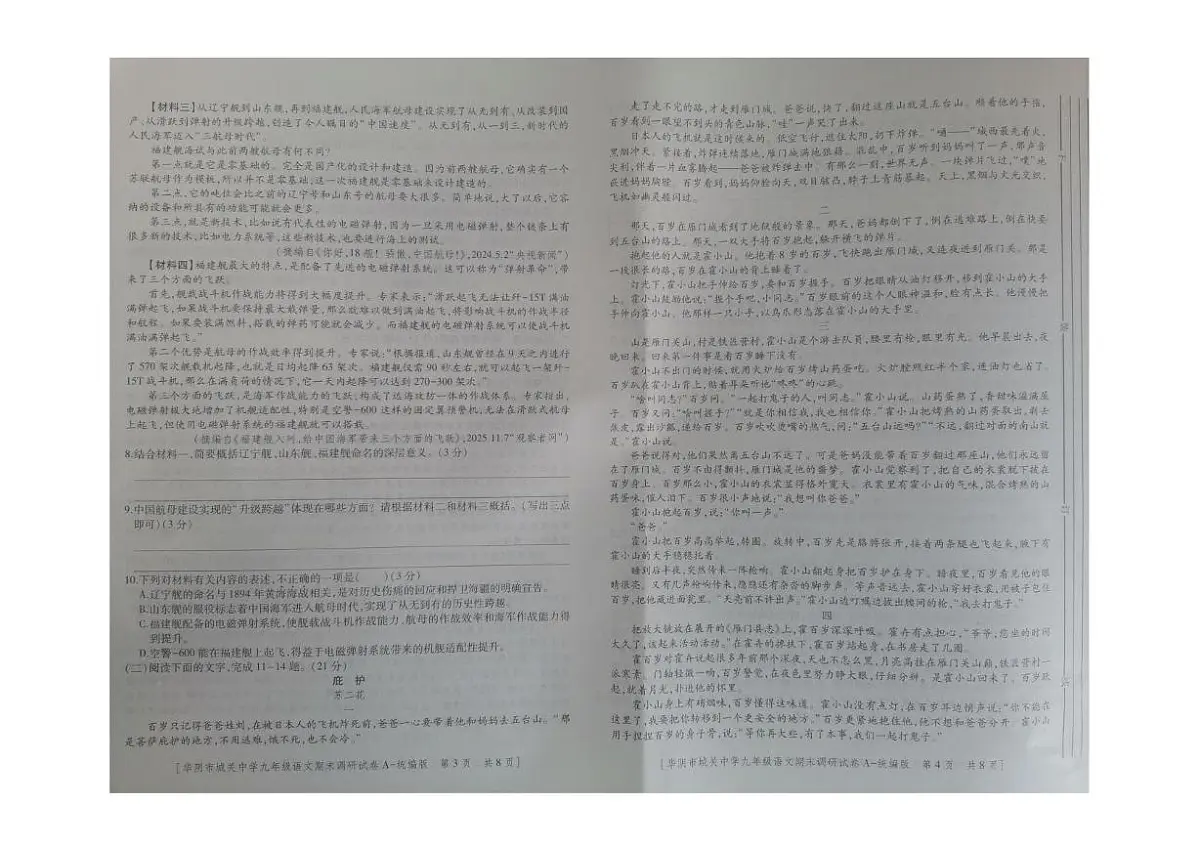 【材料三】从辽宁舰到山东舰,再到福建舰,人民海军航母建设实现了从无到有、从改装到国
产、从滑跃到弹射的升级跨越,创造了令人瞩目的“中国速度”。从无到有,从一到三,新时代的
人民海军迈入“三航母时代”。
福建舰海试与此前两艘航母有何不同?
第一点就是它是零基础的。完全是国产化的设计和建造。因为前两艘航母,它确实有一个
苏联航母作为模板,所以并不是零基础,这一次福建舰是零基础来设计建造的。
第二点,它的吨位会比之前的辽宁号和山东号的航母要大很多。简单地说,大了以后,它容
纳的设备和所具有的功能可能就会更多。
第三点,就是新技术,比如说有代表性的电磁弹射,因为一旦采用电磁弹射,整个链条上有
很多新的技术,比如电力系统等,这些新技术,也要进行海上的测试。
(摘编自《你好,18舰!骄傲,中国航母!》,2024.5.2“央视新闻”)
【材料四】福建舰最大的特点,是配备了先进的电磁弹射系统。这可以称为“弹射革命”,带
来了三个方面的飞跃。
首先,舰载战斗机作战能力将得到大幅度提升。专家表示:“滑跃起飞无法让歼-15T满油
满弹起飞,如果战斗机要保持最大载弹量,那么就难以做到满油起飞,将影响战斗机的作战半径
和航程。如果要装满燃料,搭载的弹药可能就会减少。而福建舰的电磁弹射系统可以使战斗机
满油满弹起飞。”
第二个优势是航母的作战效率得到提升。专家说:“根据报道,山东舰曾经在9天之内进行
了570架次舰载机起降,也就是日均起降63架次。福建舰仅需90秒左右,就可以起飞一架歼-
15T战斗机,那么在满负荷的情况下,它一天内起降可以达到270-300架次。”
第三个方面的飞跃,是海军作战能力的飞跃,构成了远海攻防一体的作战体系。专家指出,
电磁弹射极大地增加了机舰适配性,特别是空警-600这样的固定翼预警机,无法在滑跃式航母
上起飞,但使用电磁弹射系统的福建舰就可以搭载。
(摘编自《福建舰入列,给中国海军带来三个方面的飞跃》,2025.11.7“观察者网”)
8.结合材料一,简要概括辽宁舰、山东舰、福建舰命名的深层意义。(3分)
9.中国航母建设实现的“升级跨越”体现在哪些方面?请根据材料二和材料三概括。(写出三点
即可)(3分)
10.下列对材料有关内容的表述,不正确的一项是(  )(3分)
A.辽宁舰的命名与1894年黄海海战相关,是对历史伤痛的回应和捍卫海疆的明确宣告。
B.山东舰的服役标志着中国海军进入航母时代,实现了从无到有的历史性跨越。
C.福建舰配备的电磁弹射系统,使舰载战斗机作战能力、航母的作战效率和海军作战能力得
到提升。
D.空警-600能在福建舰上起飞,得益于电磁弹射系统带来的机舰适配性提升。
(二)阅读下面的文字,完成11-14题。(21分)
庇 护
苏二花
一
百岁只记得爸爸姓刘,在被日本人的飞机炸死前,爸爸一心要带着他和妈妈去五台山。“那
是菩萨庇护的地方,不用逃难,饿不死,也不会冷。”
[华阴市城关中学九年级语文期末调研试卷A-统编版 第3页 共8页]
走了走不完的路,才走到雁门城。爸爸说,快了,翻过这座山就是五台山。顺着他的手指,
百岁看到一眼望不到头的青色山脉,“哇”一声哭了出来。
日本人的飞机就是这时候来的。低空飞行,遮住太阳,扔下炸弹。“嘭——”城西最先着火,
黑烟冲天。紧接着,炸弹连续落地,雁门城满地狼藉。混乱中,百岁听到妈妈叫了一声,那声音
尖利,伴着一片血雾腾起——爸爸被炸弹击中。有那么一刻,世界无声。一块弹片飞过,“噗”地
嵌进妈妈胸膛。百岁看到,妈妈仰脸向天,双目皴然,脖子上青筋暴起。天上,黑烟与火光交织,
飞机如幽灵般闪过。
二
那天,百岁在雁门城看到了地狱般的景象。那天,爸妈都倒下了,倒在逃难路上,倒在快要
到五台山的路上。那天,一双大手将百岁抱起,躲开横飞的弹片。
抱起他的人就是霍小山。他抱着8岁的百岁,飞快跑出雁门城,又连夜进到雁门关。那是
一段很长的路,百岁在霍小山的背上睡着了。
灯光下,霍小山把手伸给百岁,要和百岁握手。百岁把眼睛从油灯移开,移到霍小山的大手
上。霍小山鼓励他说:“握个手吧,小同志。”百岁眼前的这个人眼神温和,脸有点长。他慢慢把
手伸向霍小山。他那样一只小手,以鸟乐形态落在霍小山的大手里。
三
山是雁门关山,村是铁匠营村,霍小山是个游击队员,腰里有枪,眼里有光。他早晨出去,夜
晚回来。回来第一件事是看百岁睡下没有。
霍小山不出门的时候,就用火炉给百岁烤山药蛋吃。火炉膛照红半个家,连油灯也省了。
百岁趴在霍小山背上,贴着耳朵听他“咚咚”的心跳。
“啥叫同志?”百岁问。“一起打鬼子的人,叫同志。”霍小山说。山药蛋熟了,香甜味溢满屋
子。百岁又问:“啥叫握手?”“就是你相信我,我也相信你。”霍小山把烤热的山药蛋取出,剥去
焦皮,露出沙瓤,递给百岁。百岁吹吹烫嘴的热气,问:“五台山远吗?”“不远,翻过对面的南山就
是。”霍小山说。
爸爸说得对,他们果然离五台山不远了。可是爸妈没能带着百岁翻过那座山,他们永远留
在了雁门城。百岁不由得颤抖,雁门城是他的噩梦。霍小山觉察到了,把自己的衣裳脱下披在
百岁身上。百岁那么小,霍小山的衣裳显得格外宽大。衣裳里有霍小山的气味,混合烤熟的山
药蛋味,催人泪下。百岁很小声地说:“我想叫你爸爸。”
霍小山抱起百岁,说:“你叫一声。”
“爸爸。”
霍小山把百岁高高举起,转圈。旋转中,百岁先是胳膊张开,接着两条腿也飞起来,腋下有
霍小山的大手稳稳托着。
睡到后半夜,突然传来一阵枪响。霍小山翻起身把百岁护在身下。暗夜里,百岁看见他的眼
睛很亮。又有几声枪响传来,隐隐还有杂沓的脚步声。等声音远去,霍小山穿好衣裳,用被子包住
百岁,把他藏进面瓮里。“天亮前不许出声。”霍小山边叮嘱边拔出腰间的枪,“我去打鬼子。”
四
把放大镜放在展开的《雁门县志》上,霍百岁深深呼吸。霍卉有点担心,“爷爷,您坐的时间
太久了,该起来活动活动。”在霍卉的搀扶下,霍百岁站起身,在书房走了几圈。
霍百岁对霍卉说起很多年前那个深夜,天也不怎么黑,月亮高挂在雁门关山巅,铁匠营村一
派寒素。门轴轻微一响,百岁警觉,在夜色里努力睁大眼,仔细分辨。是霍小山回来了。百岁跃
起,就着月光,扑进他的怀里。
霍小山身上有硝烟味,百岁懂得这味道。霍小山没有点灯,在百岁耳边悄声说:“你不能在
这里了,我要把你转移到一个更安全的地方。”百岁更紧地抱住他,他不想和爸爸分开。霍小山
用手捏捏百岁的身子骨,说:“等你再大些,有了本事,我们一起打鬼子。”
[华阴市城关中学九年级语文期末调研试卷A-统编版 第4页 共8页]